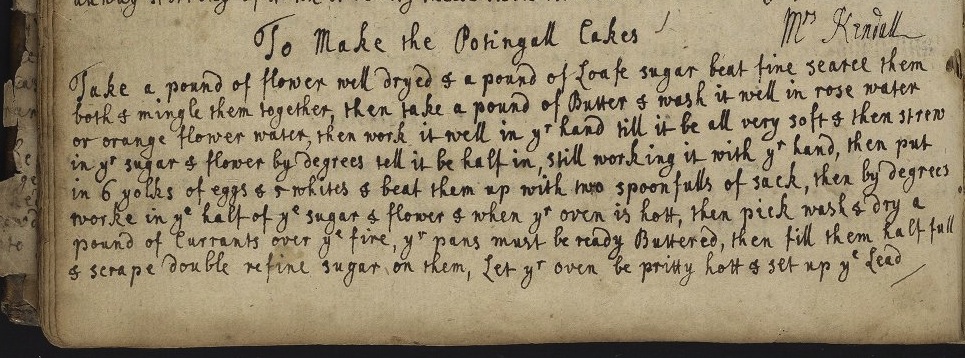 To Make the Potingall Cakes
Mrs Kendall
Take a pound of flower well dryed & a pound of Loafe sugar beat fine searce them
both & mingle them together, then take a pound of Butter & wash it well in rose water
or orange flower water, then work it well in yr hand till it be all very soft & then strew
in yr sugar & flower by degrees tell it be half in, still working it with yr hand, then put
in 6 yolks of eggs & 5 whites & beat them up with two spoonfulls of sack, then by degrees
worke in ye half of ye sugar & flower & when yr oven is hott, then pick wash & dry a
pound of Currants over ye fire, yr pans must be ready Buttered, then fill them half full
& scrape double refine sugar on them, Let yr oven be pritty hott & set up ye Lead